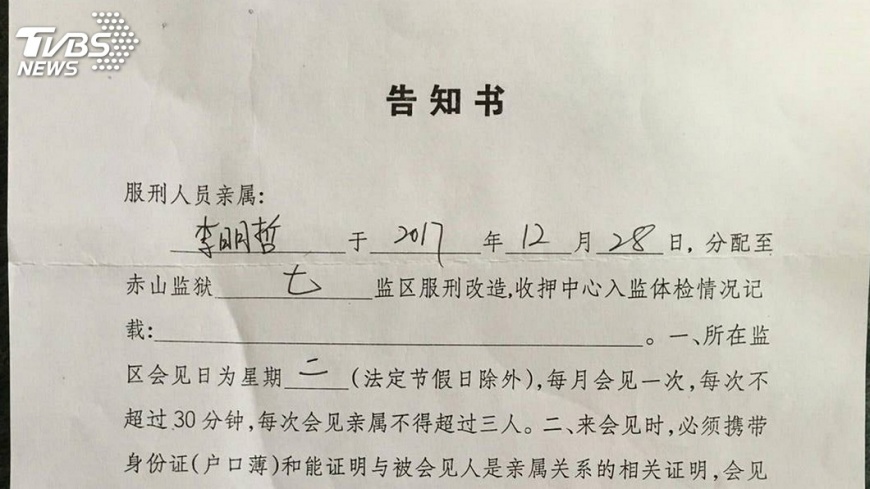 TVBS
NEWS
告知书
服刑人员亲属:
李明哲 于 2017 年 12 月 28 日, 分配至
赤山监狱 七 监区服刑改造,收押中心入监体检情况记
载: 。一、所在监
区会见日为星期 二 (法定节假日除外),每月会见一次,每次不
超过30分钟,每次会见亲属不得超过三人。二、来会见时,必须携带
身份证(户口薄)和能证明与被会见人是亲属关系的相关证明,会见